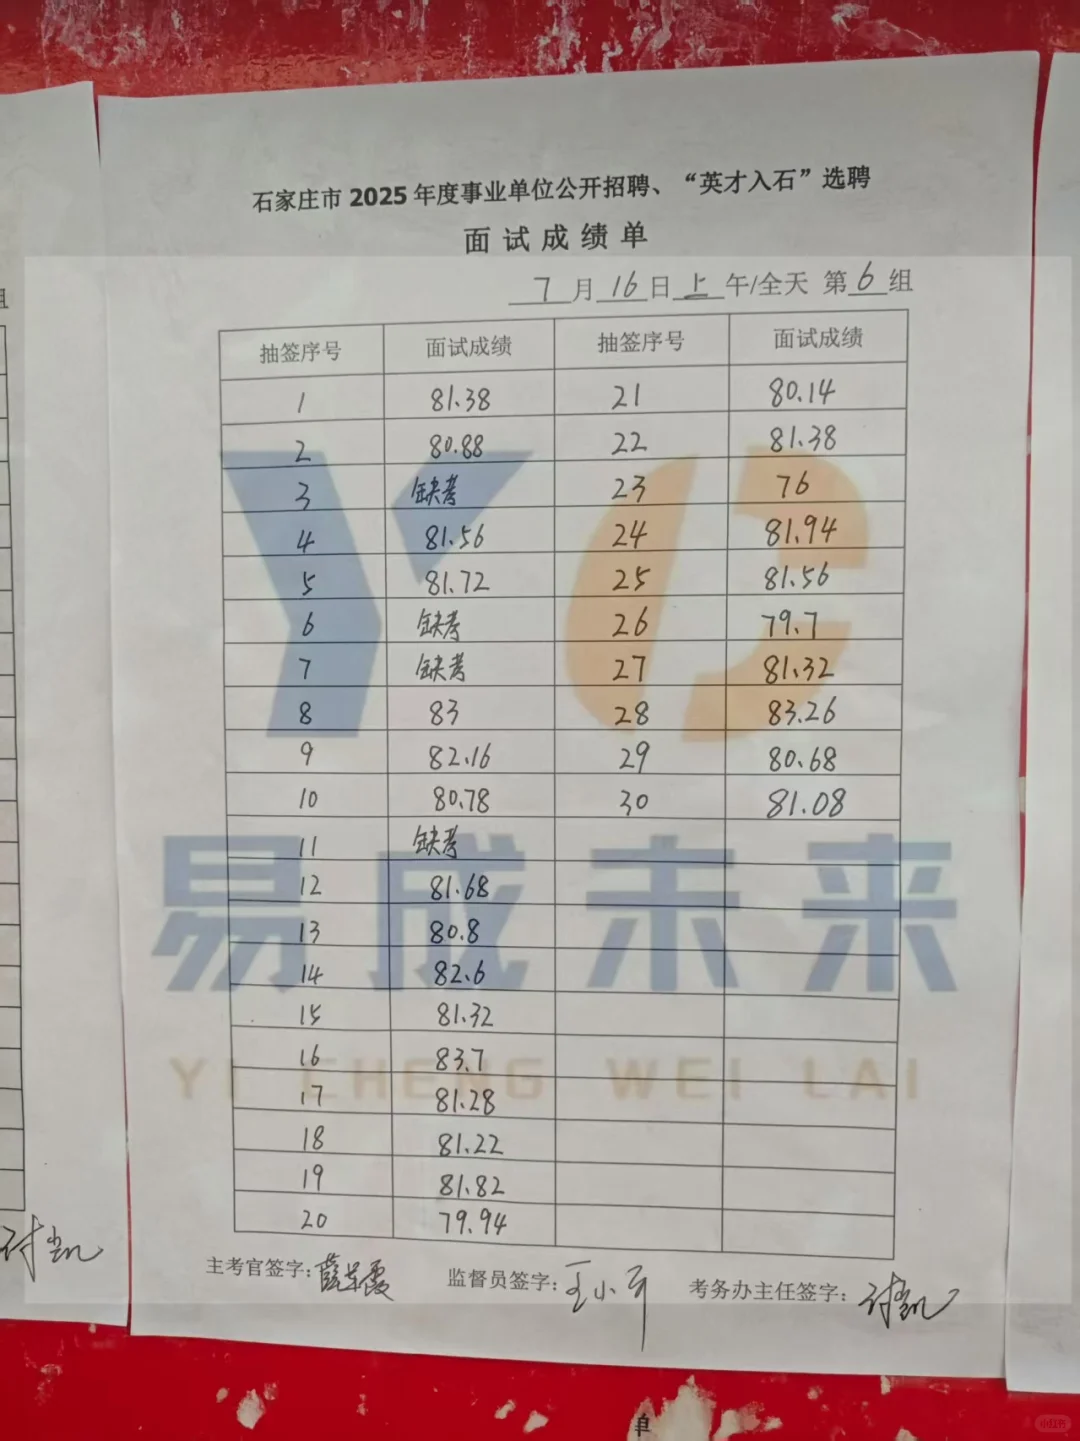 石家庄市 2025 年度事业单位公开招聘、“英才入石”选聘
面试成绩单
7月16日上午/全天 第6组
组
抽签序号 面试成绩 抽签序号 面试成绩
1 81.38 21 80.14
2 80.88 22 81.38
3 缺考 23 76
4 81.56 24 81.94
5 81.72 25 81.56
6 缺考 26 79.7
7 缺考 27 81.32
8 83 28 83.26
9 82.16 29 80.68
10 80.78 30 81.08
11 缺考
12 81.68
13 80.8
14 82.6
15 81.32
16 83.7
17 81.28
18 81.22
19 81.82
20 79.94
易成未来
YI CHENG WEI LAI
主考官签字: 监督员签字: 考务办主任签字:
单
小红书